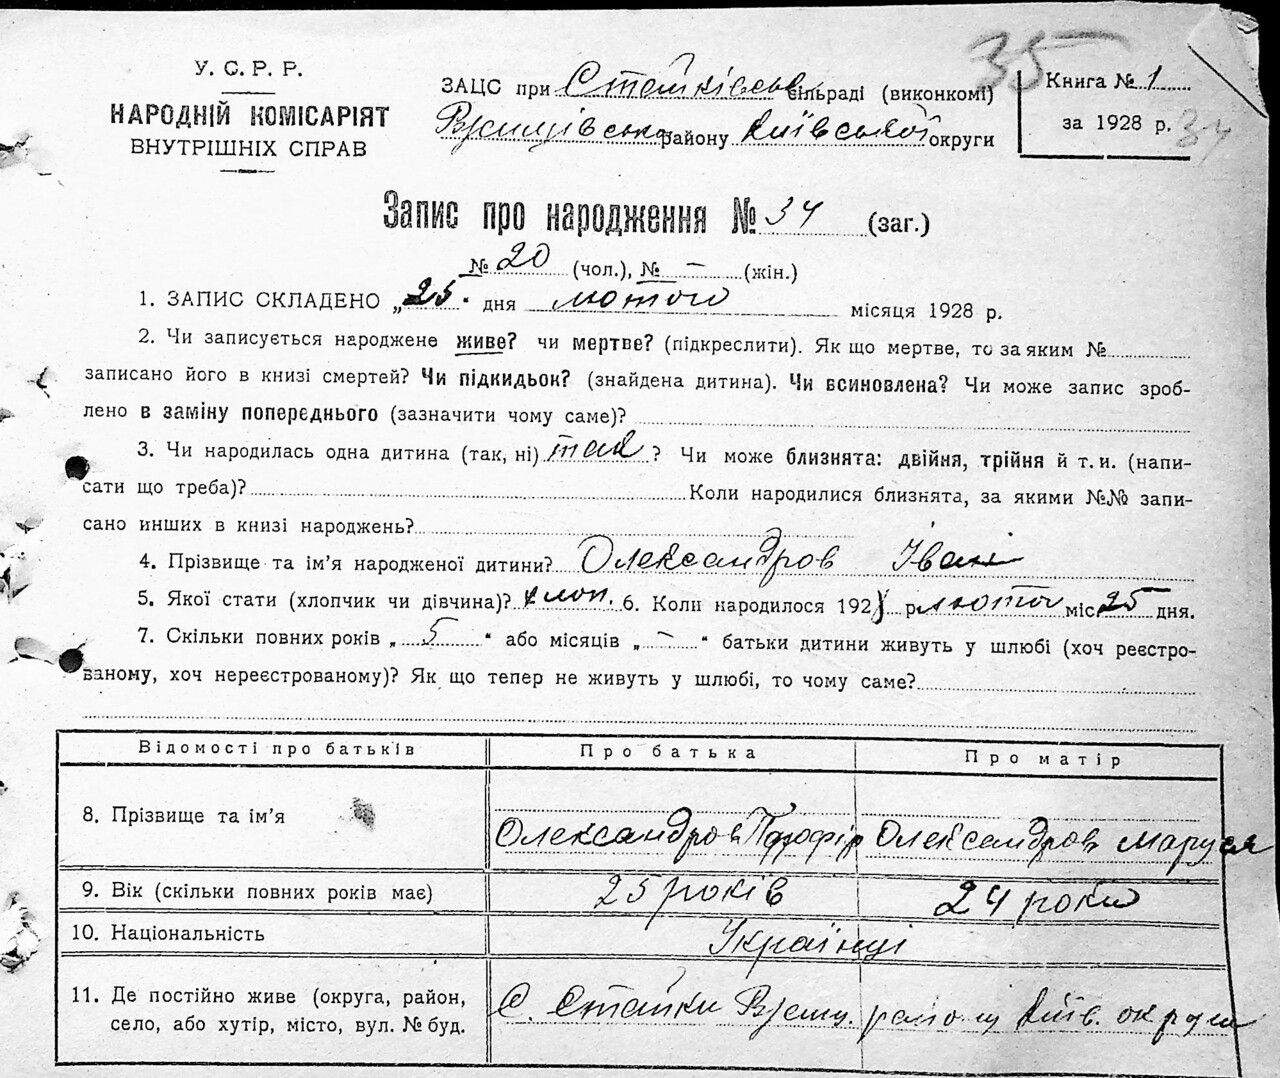 35
У. С. Р. Р.
НАРОДНІЙ КОМІСАРІЯТ
ВНУТРІШНІХ СПРАВ
ЗАЦС при Стайківськ сільраді (виконкомі)
Ржищівського району Київської округи
Книга № 1
за 1928 р.
34
Запис про народження № 34 (заг.)
№ 20 (чол.), № – (жін.)
1. ЗАПИС СКЛАДЕНО „25" дня лютого місяця 1928 р.
2. Чи записується народжене живе? чи мертве? (підкреслити). Як що мертве, то за яким №
записано його в книзі смертей? Чи підкидьок? (знайдена дитина). Чи всиновлена? Чи може запис зроб-
лено в заміну попереднього (зазначити чому саме)?
3. Чи народилась одна дитина (так, ні) так ? Чи може близнята: двійня, трійня й т. и. (напи-
сати що треба)? Коли народилися близнята, за якими №№ запи-
сано инших в книзі народжень?
4. Прізвище та ім'я народженої дитини? Олександров Іван
5. Якої стати (хлопчик чи дівчина)? хлоп. 6. Коли народилося 1928 р. лютого міс 25 дня.
7. Скільки повних років „ 5 " або місяців „ – " батьки дитини живуть у шлюбі (хоч реєстро-
ваному, хоч нереєстрованому)? Як що тепер не живуть у шлюбі, то чому саме?
Відомості про батьків Про батька Про матір
8. Прізвище та ім'я Олександров Порфір Олександров Маруся
9. Вік (скільки повних років має) 25 років 24 роки
10. Національність Українці
11. Де постійно живе (округа, район,
село, або хутір, місто, вул. № буд.
С. Стайки Ржищ. району Київ. округи